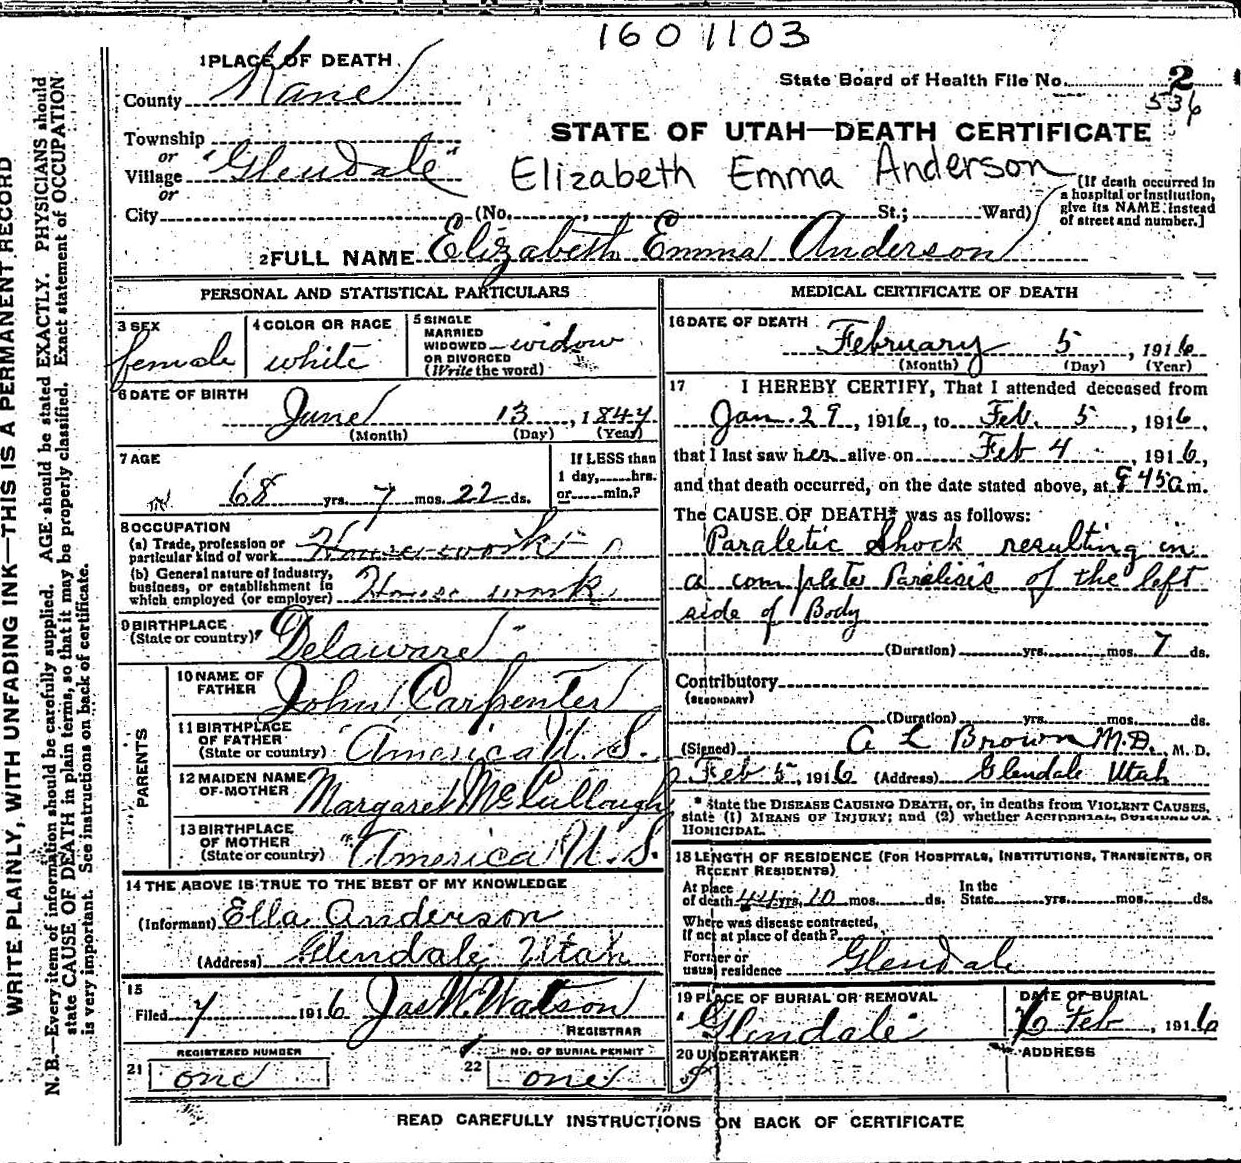 1601103
1 PLACE OF DEATH
State Board of Health File No. 2
536
County Kane
STATE OF UTAH—DEATH CERTIFICATE
Township
or
Village "Glendale"
or
Elizabeth Emma Anderson
City (No. , St.; Ward)
[If death occurred in
a hospital or institution,
give its NAME instead
of street and number.]
2 FULL NAME Elizabeth Emma Anderson
PERSONAL AND STATISTICAL PARTICULARS
3 SEX
female
4 COLOR OR RACE
white
5 SINGLE
MARRIED
WIDOWED widow
OR DIVORCED
(Write the word)
6 DATE OF BIRTH
June 13, 1847
(Month) (Day) (Year)
7 AGE
68 yrs. 7 mos. 22 ds.
If LESS than
1 day, hrs.
or min.?
8 OCCUPATION
(a) Trade, profession or
particular kind of work House work
(b) General nature of industry,
business, or establishment in
which employed (or employer) House work
9 BIRTHPLACE
(State or country) Delaware
PARENTS
10 NAME OF
FATHER John Carpenter
11 BIRTHPLACE
OF FATHER
(State or country) America U. S.
12 MAIDEN NAME
OF MOTHER Margaret McCullough
13 BIRTHPLACE
OF MOTHER
(State or country) "America U. S.
14 THE ABOVE IS TRUE TO THE BEST OF MY KNOWLEDGE
(Informant) Ella Anderson
(Address) Glendale Utah
15
Filed 7 1916 Jas W. Watson
REGISTRAR
21 REGISTERED NUMBER
one
22 NO. OF BURIAL PERMIT
one
MEDICAL CERTIFICATE OF DEATH
16 DATE OF DEATH
February 5, 1916
(Month) (Day) (Year)
17 I HEREBY CERTIFY, That I attended deceased from
Jan. 29, 1916, to Feb. 5, 1916,
that I last saw her alive on Feb 4, 1916,
and that death occurred, on the date stated above, at 9 45 a m.
The CAUSE OF DEATH* was as follows:
Paraletic Shock resulting in
a complete Paralisis of the left
side of Body
(Duration) yrs. mos. 7 ds.
Contributory
(SECONDARY)
(Duration) yrs. mos. ds.
(Signed) A L Brown M.D., M. D.
Feb 5, 1916 (Address) Glendale Utah
* State the DISEASE CAUSING DEATH, or, in deaths from VIOLENT CAUSES,
state (1) MEANS OF INJURY; and (2) whether ACCIDENTAL, SUICIDAL OR
HOMICIDAL.
18 LENGTH OF RESIDENCE (FOR HOSPITALS, INSTITUTIONS, TRANSIENTS, OR
RECENT RESIDENTS)
At place
of death 44 yrs. 10 mos. ds.
In the
State yrs. mos. ds.
Where was disease contracted,
If not at place of death?
Former or
usual residence Glendale
19 PLACE OF BURIAL OR REMOVAL
Glendale
DATE OF BURIAL
6 Feb, 1916
20 UNDERTAKER
ADDRESS
READ CAREFULLY INSTRUCTIONS ON BACK OF CERTIFICATE
WRITE PLAINLY, WITH UNFADING INK—THIS IS A PERMANENT RECORD
N. B.—Every item of information should be carefully supplied. AGE should be stated EXACTLY. PHYSICIANS should
state CAUSE OF DEATH in plain terms, so that it may be properly classified. Exact statement of OCCUPATION
is very important. See instructions on back of certificate.